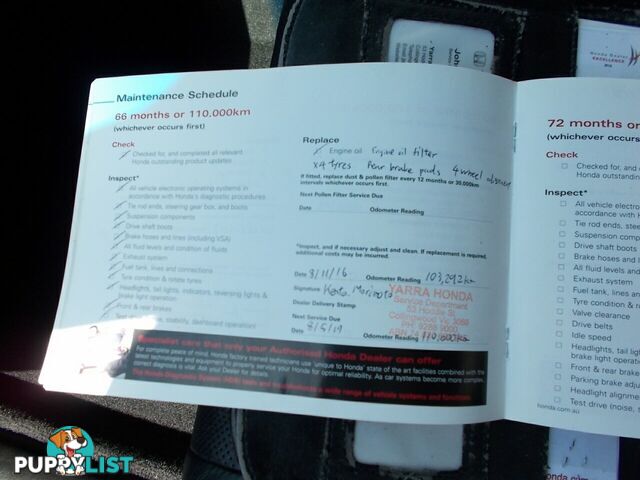 Maintenance Schedule
66 months or 110,000km
(whichever occurs first)
Check
Checked for, and completed all relevant
Honda outstanding product updates
Inspect*
All vehicle electronic operating systems in
accordance with Honda's diagnostic procedures
Tie rod ends, steering gear box, and boots
Suspension components
Drive shaft boots
Brake hoses and lines (including VSA)
All fluid levels and condition of fluids
Exhaust system
Fuel tank, lines and connections
Tyre condition & rotate tyres
Headlights, tail lights, indicators, reversing lights &
brake light operation
Front & rear brakes
Test drive (noise, stability, dashboard operation)
Replace
Engine oil Engine oil filter
x4 tyres Rear brake pads 4 wheel
If fitted, replace dust & pollen filter every 12 months or 30,000km
intervals whichever occurs first.
Next Pollen Filter Service Due
Date Odometer Reading
*Inspect, and if necessary adjust and clean. If replacement is required,
additional costs may be incurred.
Date 8/11/16 Odometer Reading 103,292km
Signature
Dealer Delivery Stamp
YARRA HONDA
Service Department
53 Hoddle St
Collingwood Vic 3066
PH: 9288 9000
Next Service Due
Date 8/5/17 Odometer Reading 110,000km
Specialist care that only your Authorised Honda Dealer can offer
For complete peace of mind, Honda factory trained technicians use 'unique to Honda' state of the art facilities combined with the
latest technologies and equipment to properly service your Honda for optimal reliability. As car systems become more complex,
correct diagnosis is vital. Ask your Dealer for details.
The Honda Diagnostic System (HDS) tests and troubleshoots a wide range of vehicle systems and functions.
72 months or
(whichever occurs
Check
Checked for, and
Honda outstandin
Inspect*
All vehicle electro
accordance with H
Tie rod ends, stee
Suspension compo
Drive shaft boots
Brake hoses and l
All fluid levels and
Exhaust system
Fuel tank, lines an
Tyre condition & r
Valve clearance
Drive belts
Idle speed
Headlights, tail ligh
brake light operatio
Front & rear brake
Parking brake adju
Headlight alignme
Test drive (noise,
honda.com.au
Honda Dealer
EXCELLENCE
John
Yarra
PUPPYLIST